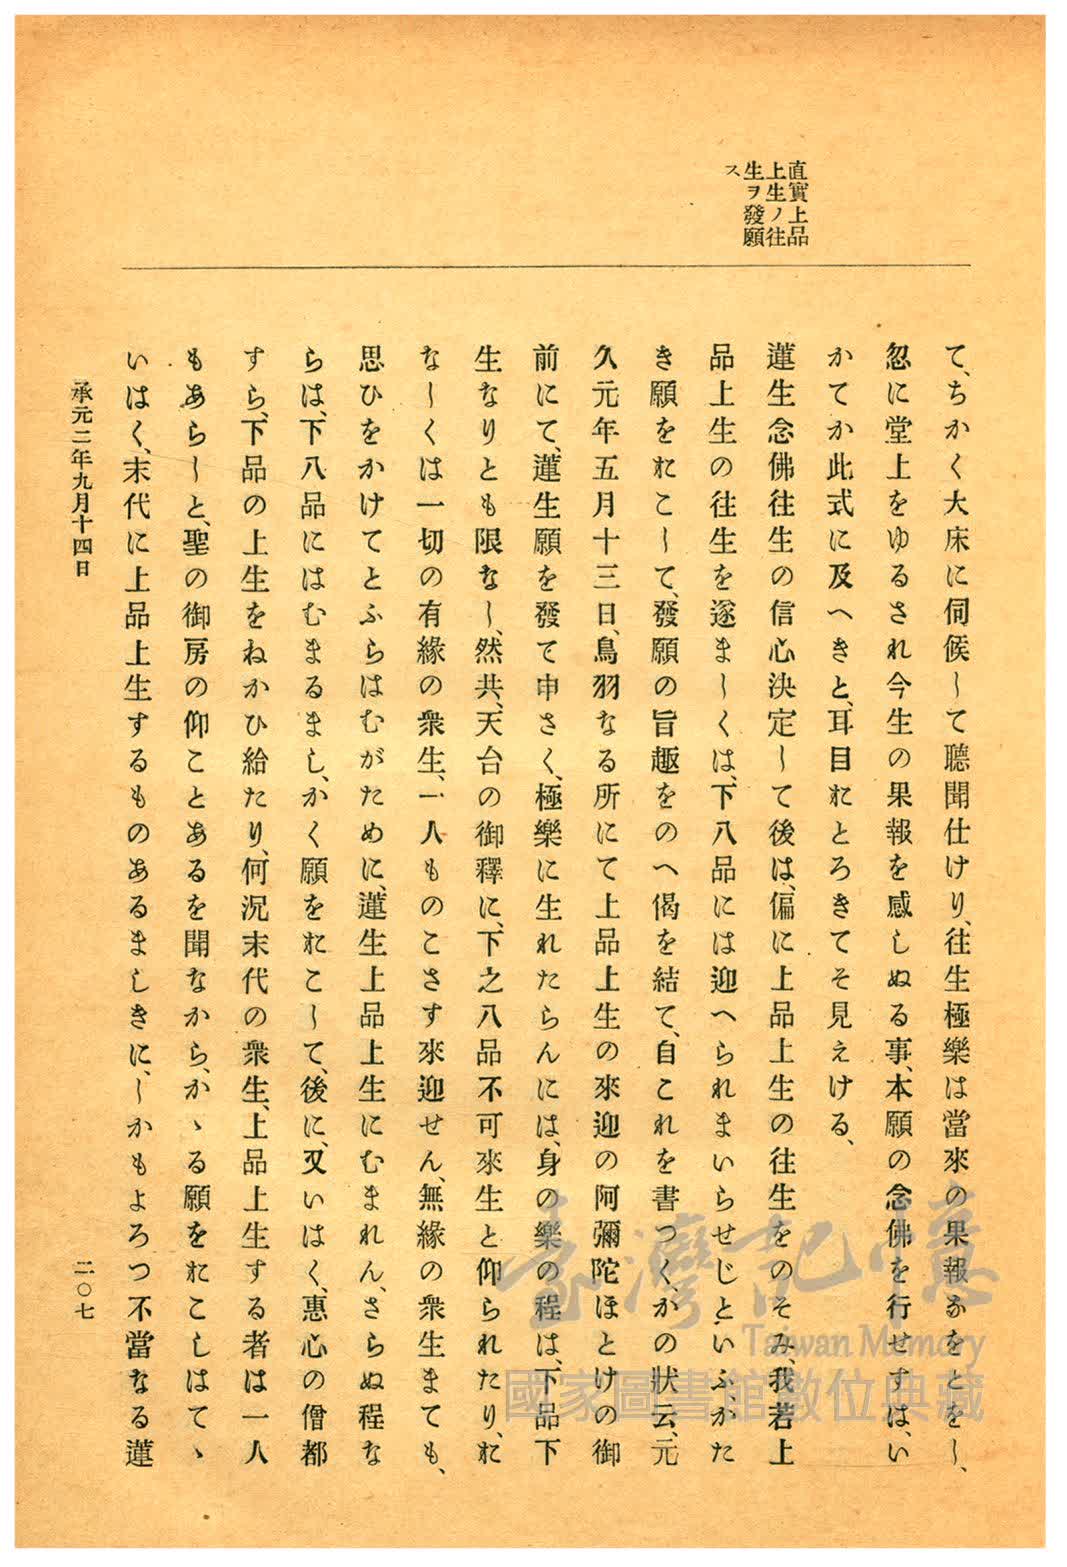 直實上品
上生ノ往
生ヲ發願
ス
て、ちかく大床に伺候〳〵て聽聞仕けり、往生極樂は當來の果報なをとをし、
忽に堂上をゆるされ今生の果報を感しぬる事、本願の念佛を行せすは、い
かてか此式に及へきと、耳目おとろきてそ見えける、
蓮生念佛往生の信心決定して後は、偏に上品上生の往生をのそみ、我若上
品上生の往生を遂ましくは、下八品には迎へられまいらせじといふ、かた
き願をおこして、發願の旨趣をのへ偈を結て、自これを書つく、かの狀云、元
久元年五月十三日、鳥羽なる所にて上品上生の來迎の阿彌陀ほとけの御
前にて、蓮生願を發て申さく、極樂に生れたらんには、身の樂の程は、下品下
生なりとも限なし、然共、天台の御釋に、下之八品不可來生と仰られたり、お
なしくは一切の有緣の衆生、一人ものこさす來迎せん、無緣の衆生まても、
思ひをかけてとふらはむがために、蓮生上品上生にむまれん、さらぬ程な
らは、下八品にはむまるまし、かく願をおこして、後に、又いはく、惠心の僧都
すら、下品の上生をねかひ給たり、何況末代の衆生、上品上生する者は一人
もあらしと、聖の御房の仰ことあるを聞なから、かゝる願をおこしはてゝ
いはく、末代に上品上生するものあるましきに、しかもよろつ不當なる蓮
承元二年九月十四日
二〇七
臺灣記憶
Taiwan Memory
國家圖書館數位典藏